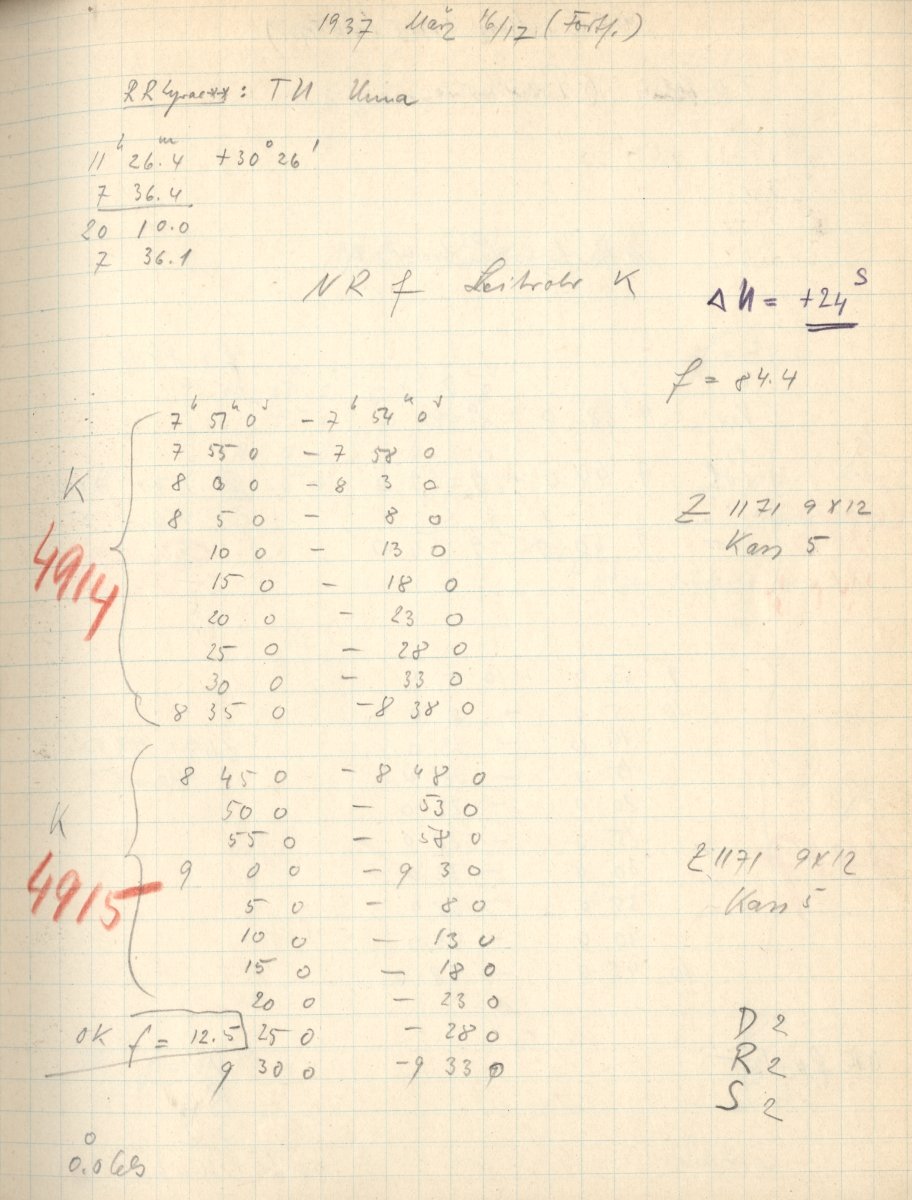 1937 März 16/17 (Forts.)
RR Lyrae**: TU Uma
11h 26.4m +30° 26'
7 36.4
20 10.0
7 36.1
NR f Leitrohr K
ΔU = +24s
f = 84.4
7h 51m 0s - 7h 54m 0s
7 55 0 - 7 58 0
K
8 0 0 - 8 3 0
8 5 0 - 8 0
Z 1171 9x12
Kass 5
4914
10 0 - 13 0
15 0 - 18 0
20 0 - 23 0
25 0 - 28 0
30 0 - 33 0
8 35 0 - 8 38 0
8 45 0 - 8 48 0
K
50 0 - 53 0
55 0 - 58 0
Z 1171 9x12
Kass 5
4915
9 0 0 - 9 3 0
5 0 - 8 0
10 0 - 13 0
15 0 - 18 0
20 0 - 23 0
OK f = 12.5
25 0 - 28 0
9 30 0 - 9 33 0
D 2
R 2
S 2